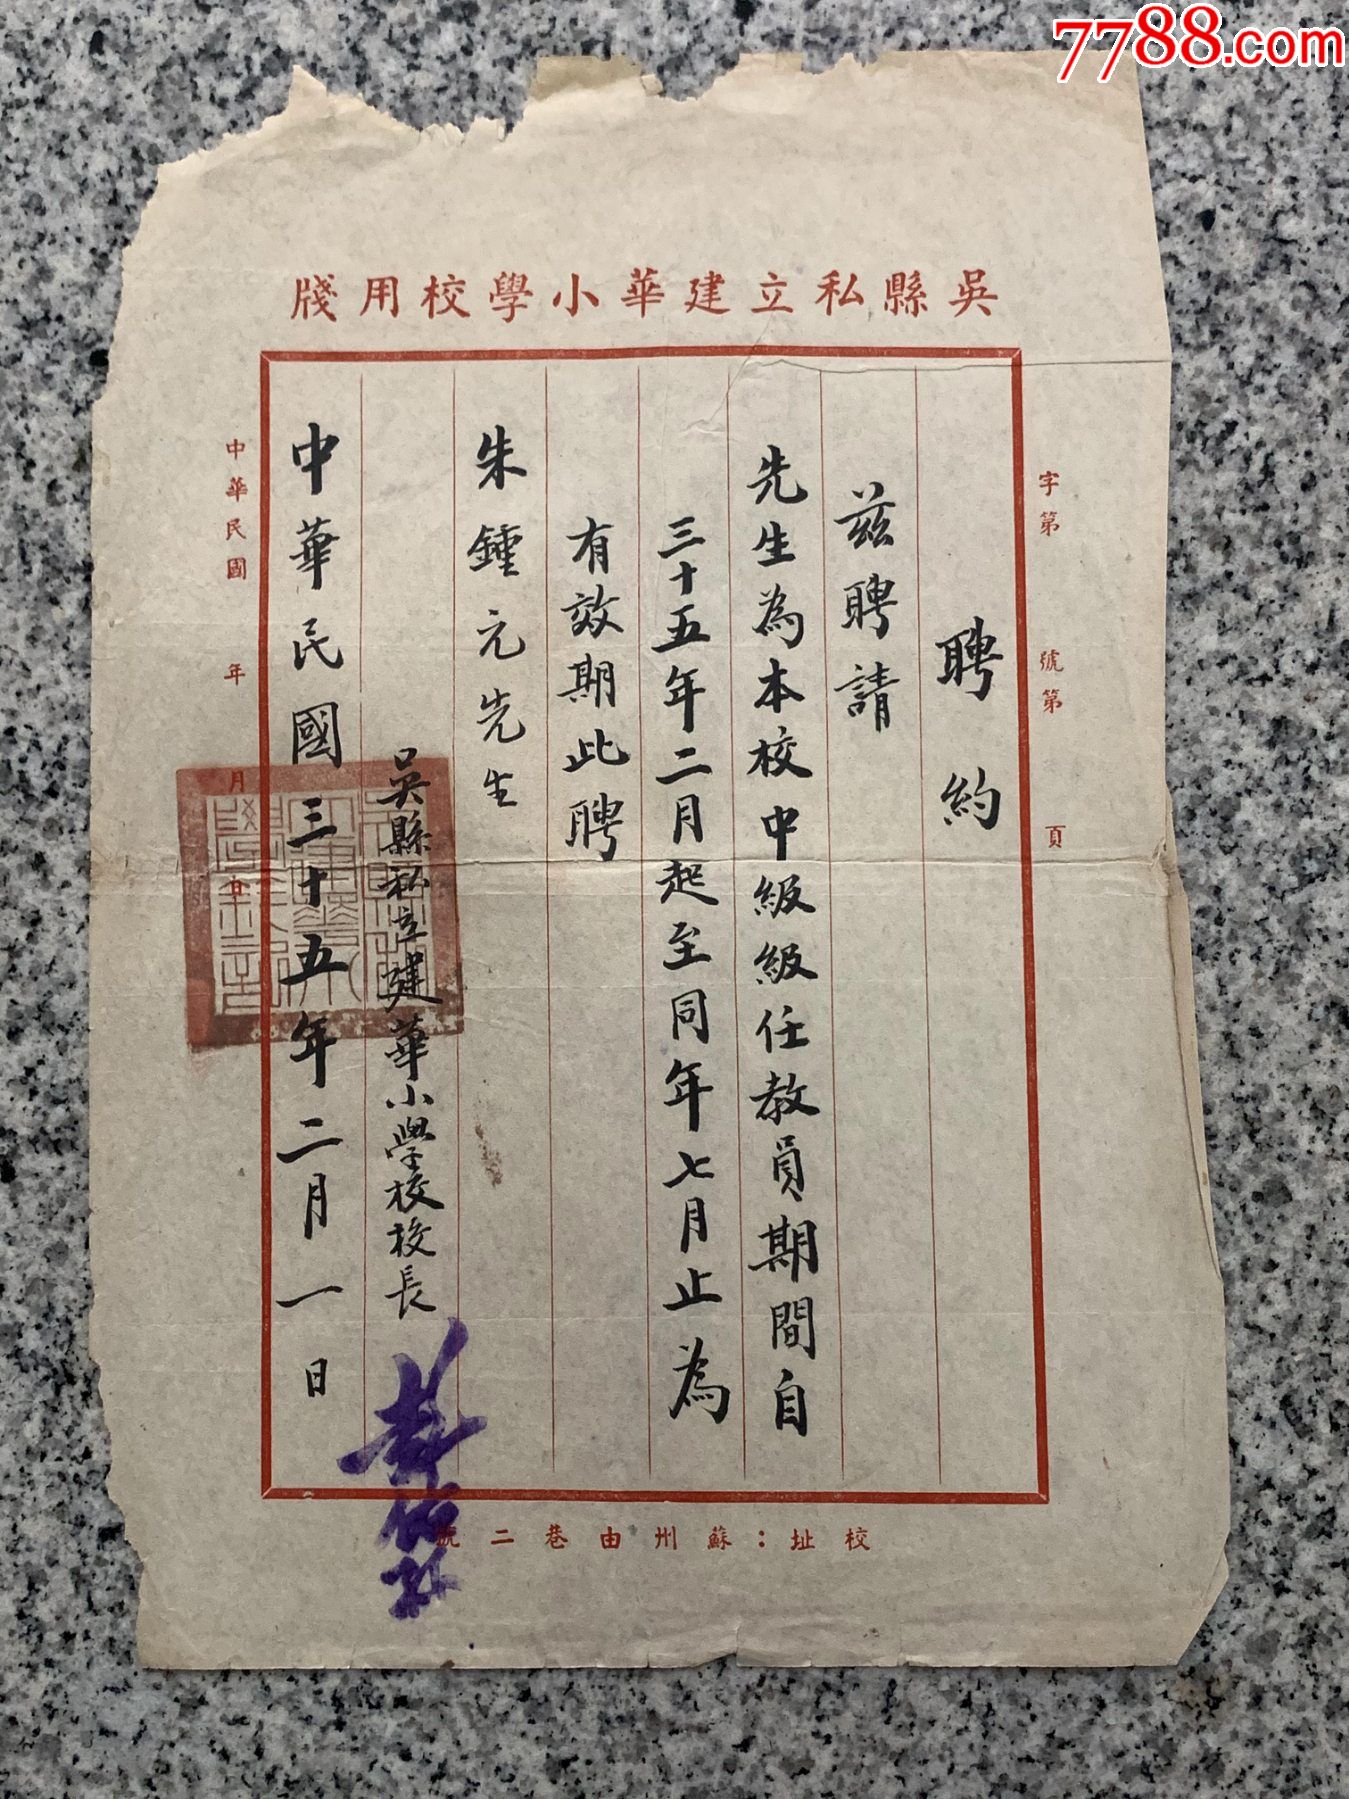 7788.com
吳縣私立建華小學校用牋
字第　號第　頁
聘約
茲聘請
先生為本校中級級任教員期間自
三十五年二月起至同年七月止為
有效期此聘
朱鍾元先生
吳縣私立建華小學校校長
中華民國三十五年二月一日
中華民國　年　月　日
校址：蘇州由巷二號